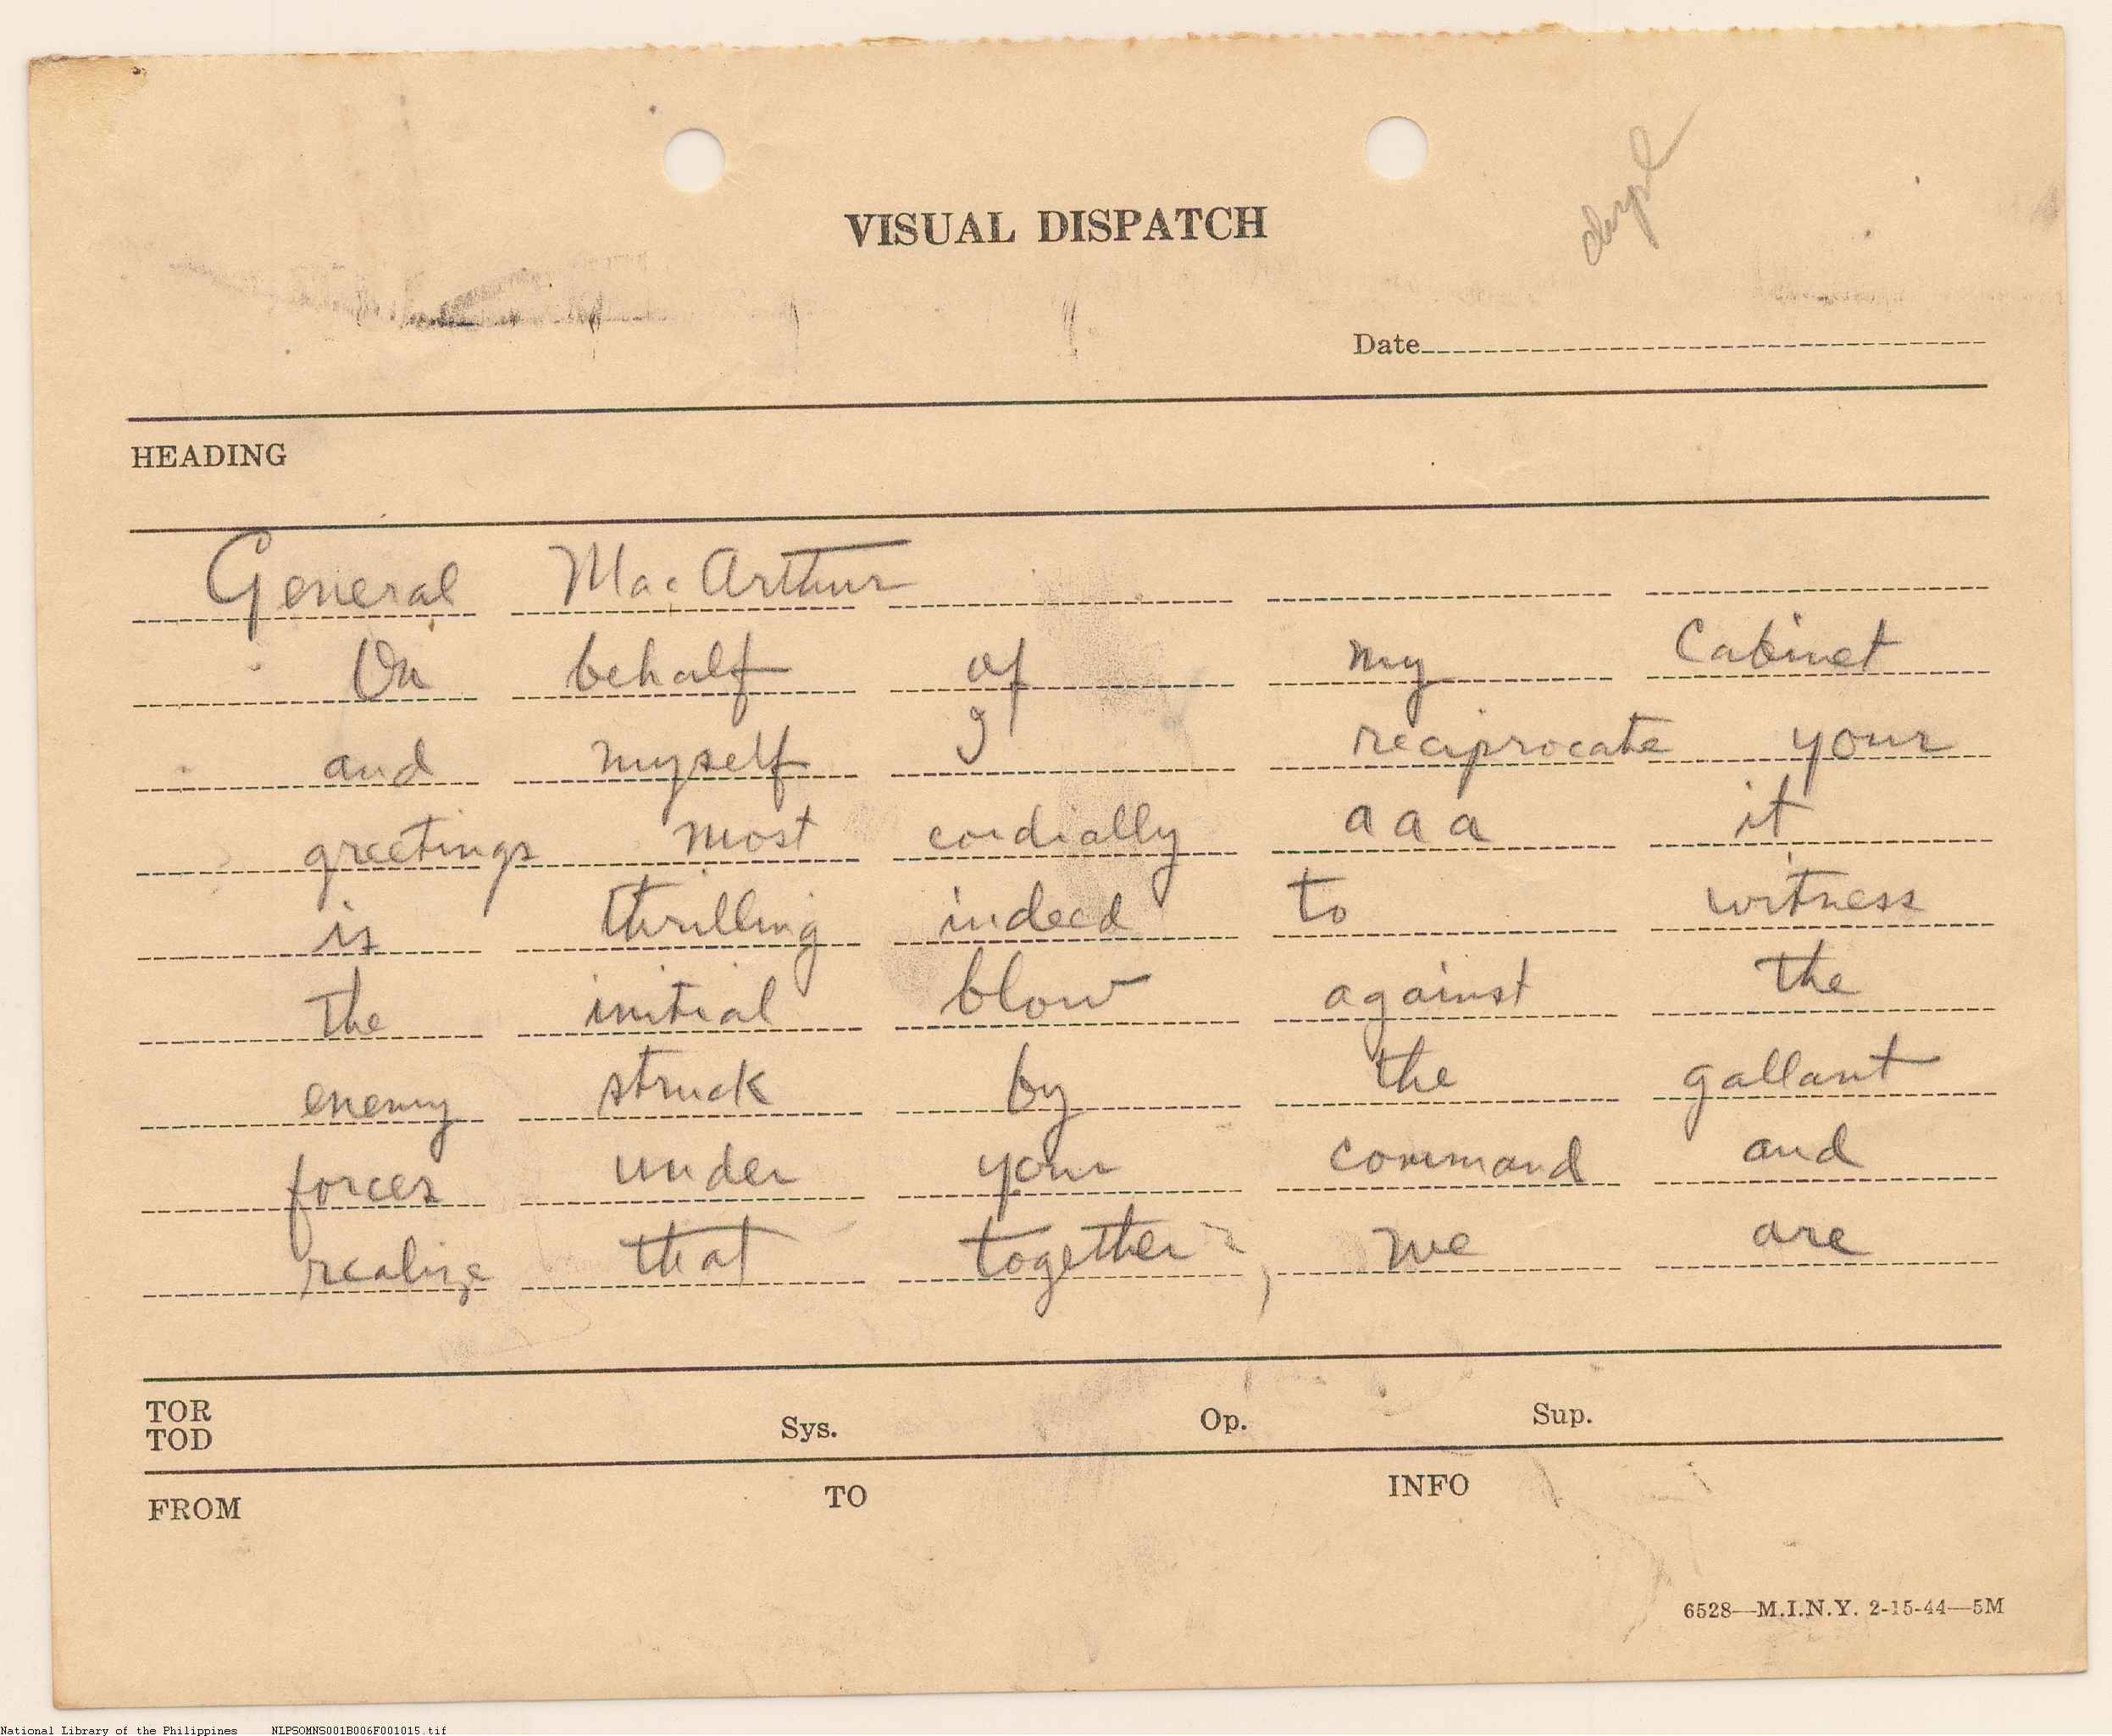 dupl
VISUAL DISPATCH
Date
HEADING
General MacArthur
On behalf of my Cabinet
and myself I reciprocate your
greetings most cordially aaa it
is thrilling indeed to witness
the initial blow against the
enemy struck by the gallant
forces under your command and
realize that together, we are
TOR
TOD Sys. Op. Sup.
FROM TO INFO
6528—M.I.N.Y. 2-15-44—5M
National Library of the Philippines NLPSOMNS001B006F001015.tif